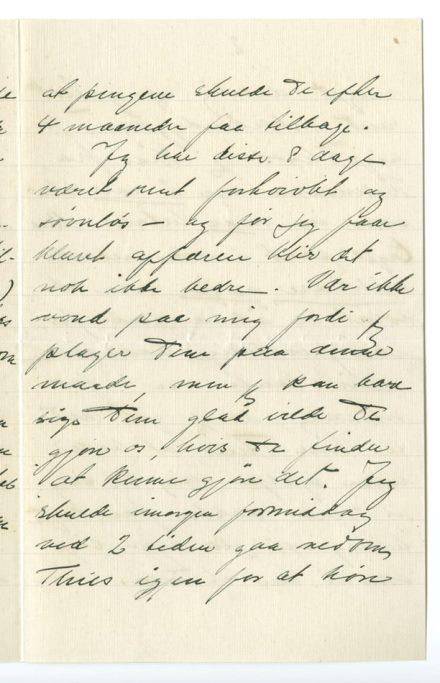 at pengene skulde De efter
4 maaneder faa tilbage.
Jeg har disse 8 dage
været rent forkvivlet og
søvnløs — og før jeg faar
klaret affæren blir det
nok ikke bedre. Vær ikke
vond paa mig fordi jeg
plager Dem paa denne
maade, men jeg kan bare
sige Dem glad vilde De
gjøre os, hvis De finder
at kunne gjøre det. Jeg
skulde imorgen formiddag
ved 2 tiden gaa nedom
Thiis igjen for at høre